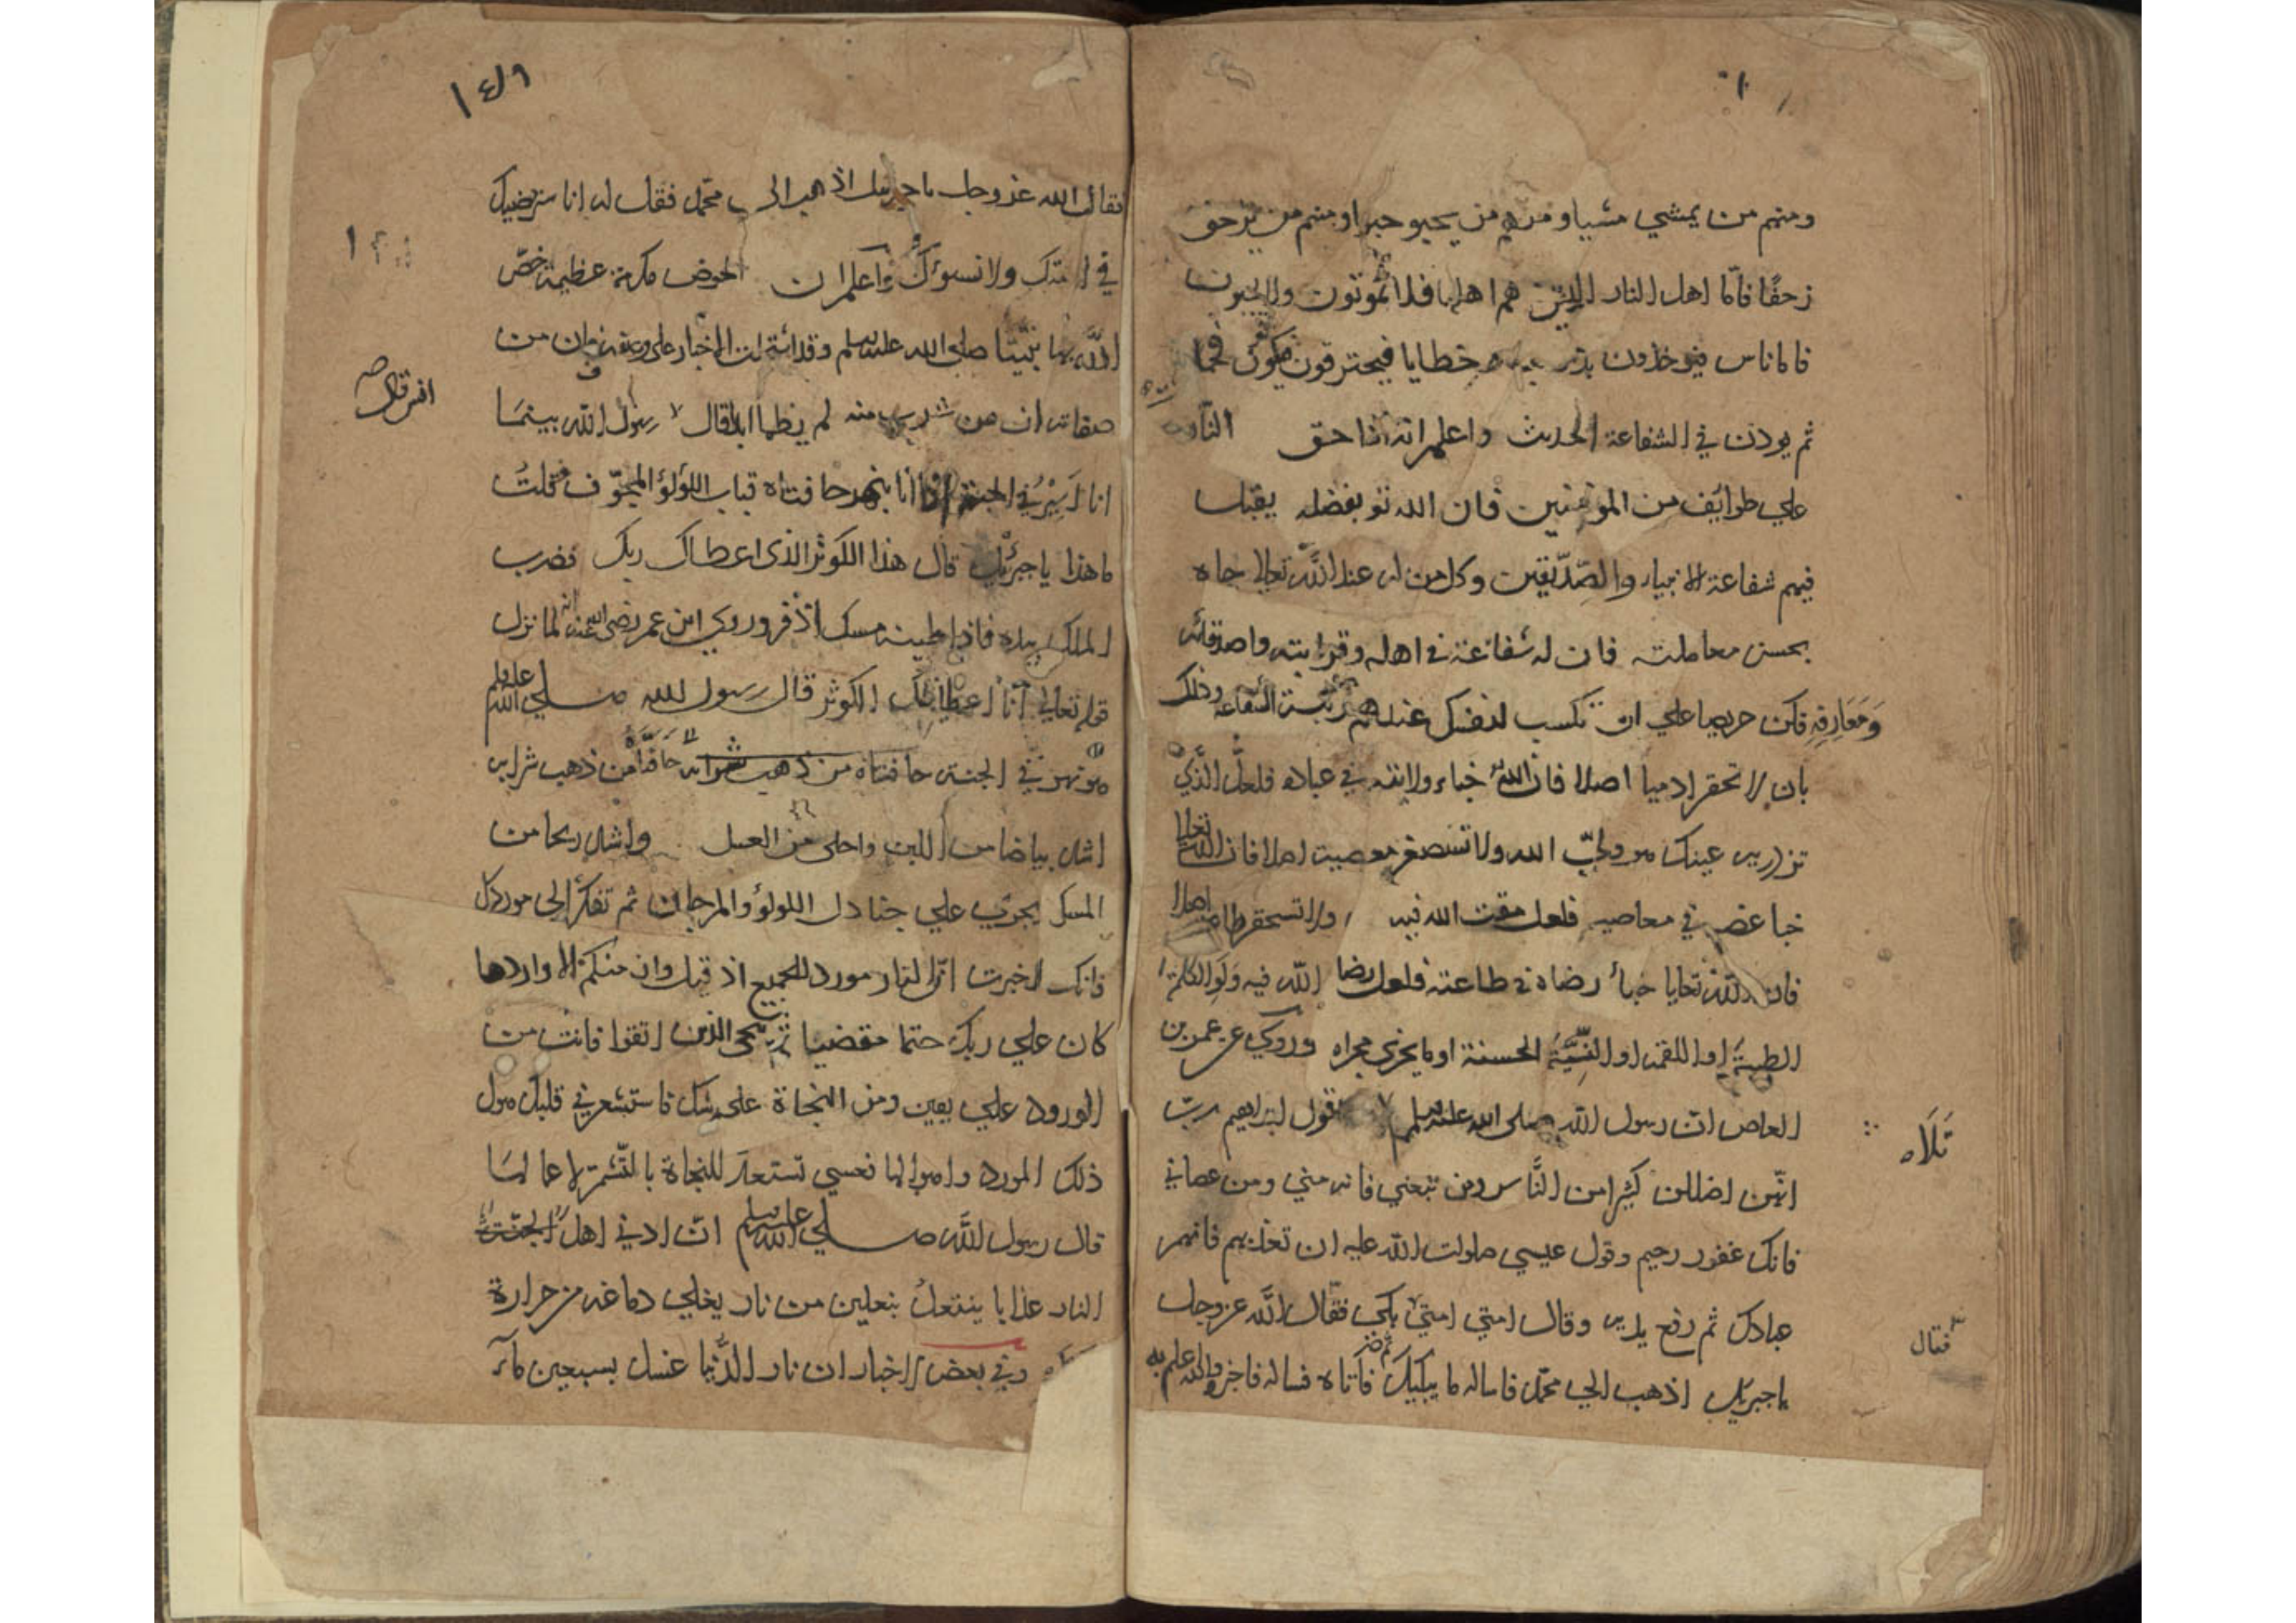 ومنهم من يمشي مشيا ومنهم من يحبو حبوا ومنهم من يزحف
زحفًا فامّا اهل النار الذين هم اهلها فلا يموتون ولا يحيون
فاما ناس فيوخذون بذنوب وخطايا فيحترقون فيكونون فحما
ثم يوذن في الشفاعة الحديث واعلم انه اذا حق النار
علي طوايف من المومنين فان الله تع بفضله يقبل
فيهم شفاعة الانبياء والصّدّيقين وكل من له عند الله تعالي جاه
بحسن معاملته فان له شفاعة في اهله وقرابته واصدقائه
وَمَعَارِفِهِ فكن حريصا علي ان تكسب لنفسك عندهم رتبة الشفاعة وذلك
بان لا تحقر ادميا اصلا فان الله خباء ولايته في عباده فلعلّ الذي
تزدريه عينك هو وليّ الله ولا تستصغر معصية اصلا فان الله تعالي
خبا غضبه في معاصيه فلعل مقت الله فيه ولا تستحقر طاعة اصلا
فان الله تعالي خبأ رضاه في طاعته فلعل رضا الله فيه وَلَوِ الكلمة
الطيبة او اللقمة او النيّة الحسنة او ما يجري مجراه وروي عن عمرو بن
العاص ان رسول الله صلى الله عليه وسلم قول ابراهيم ربّ
تَلَاه
انهن اضللن كثيرا من النَّاس ومن تبعني فانه مني ومن عصاني
فانك غفور رحيم وقول عيسي صلوات الله عليه ان تعذبهم فانهم
عبادك ثم رفع يديه وقال امتي امتي ثم بكي فقال الله عز وجل
فقال
يا جبريل اذهب الي محمّد فاساله ما يبكيك فاتاه فساله فاخبره والله علم به
١٤٩
فقال الله عز وجل يا جبريل اذهب الى محمّد فقل له انا سنرضيك
في امتك ولا نسوؤك واعلم ان الحوض مكرمة عظيمة خصّ
الله بها نبيّنا صلى الله عليه وسلم وقد اشتملت الاخبار على وصفه فان من
صفاته ان من شرب منه لم يظما ابدا قال رسول الله بينما
انا اَسِيْرُ في الجنة اذا انا بنهر حافتاه قباب اللؤلؤ المجوّف فقلتُ
ما هذا يا جبرئيل قال هذا الكوثر الذي اعطاك ربك فضرب
الملك بيده فاذا طينه مسك اذفر وروي ابن عمر رضي الله عنه انه لما نزل
قوله تعالي انا اعطيناك الكوثر قال رسول الله صلي الله عليه وسلم
هو نهر في الجنة حافتاه من ذهب شرابه
اشد بياضا من اللبن واحلى من العسل واشد ريحا من
المسك يجري علي جنادل اللولؤ والمرجان ثم تفكّر الى موردك
فانك اخبرت انّ النار مورد للجميع اذ قيل وان منكم الا واردها
كان علي ربك حتما مقضيا ثم ننجي الذين اتقوا فانت من
الورود علي يقين ومن النجاة على شك فاستشعر في قلبك هول
ذلك المورد
قال رسول الله صلي الله عليه وسلم انّ ادني اهل
النار عذابا ينتعلُ بنعلين من نار يغلي دماغه من حرارة
وفي بعض الاخبار ان نار الدُّنيا غسل بسبعين مآء